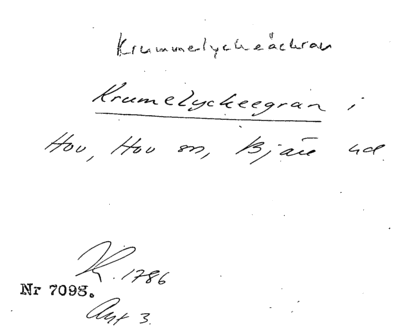 Krummelyckeåchran
Krumelyckeegran i
Hov, Hov sn, Bjäre hd.
R. 1786
Nr 7098.
Akt 3.